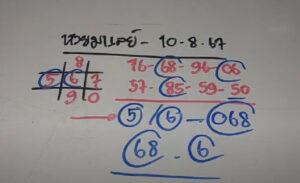 หวยมาเลย์ - 10-8-67
8
5 6 7
9 0
76-68-96-06
57-85-59-50
5/6-068
68-6